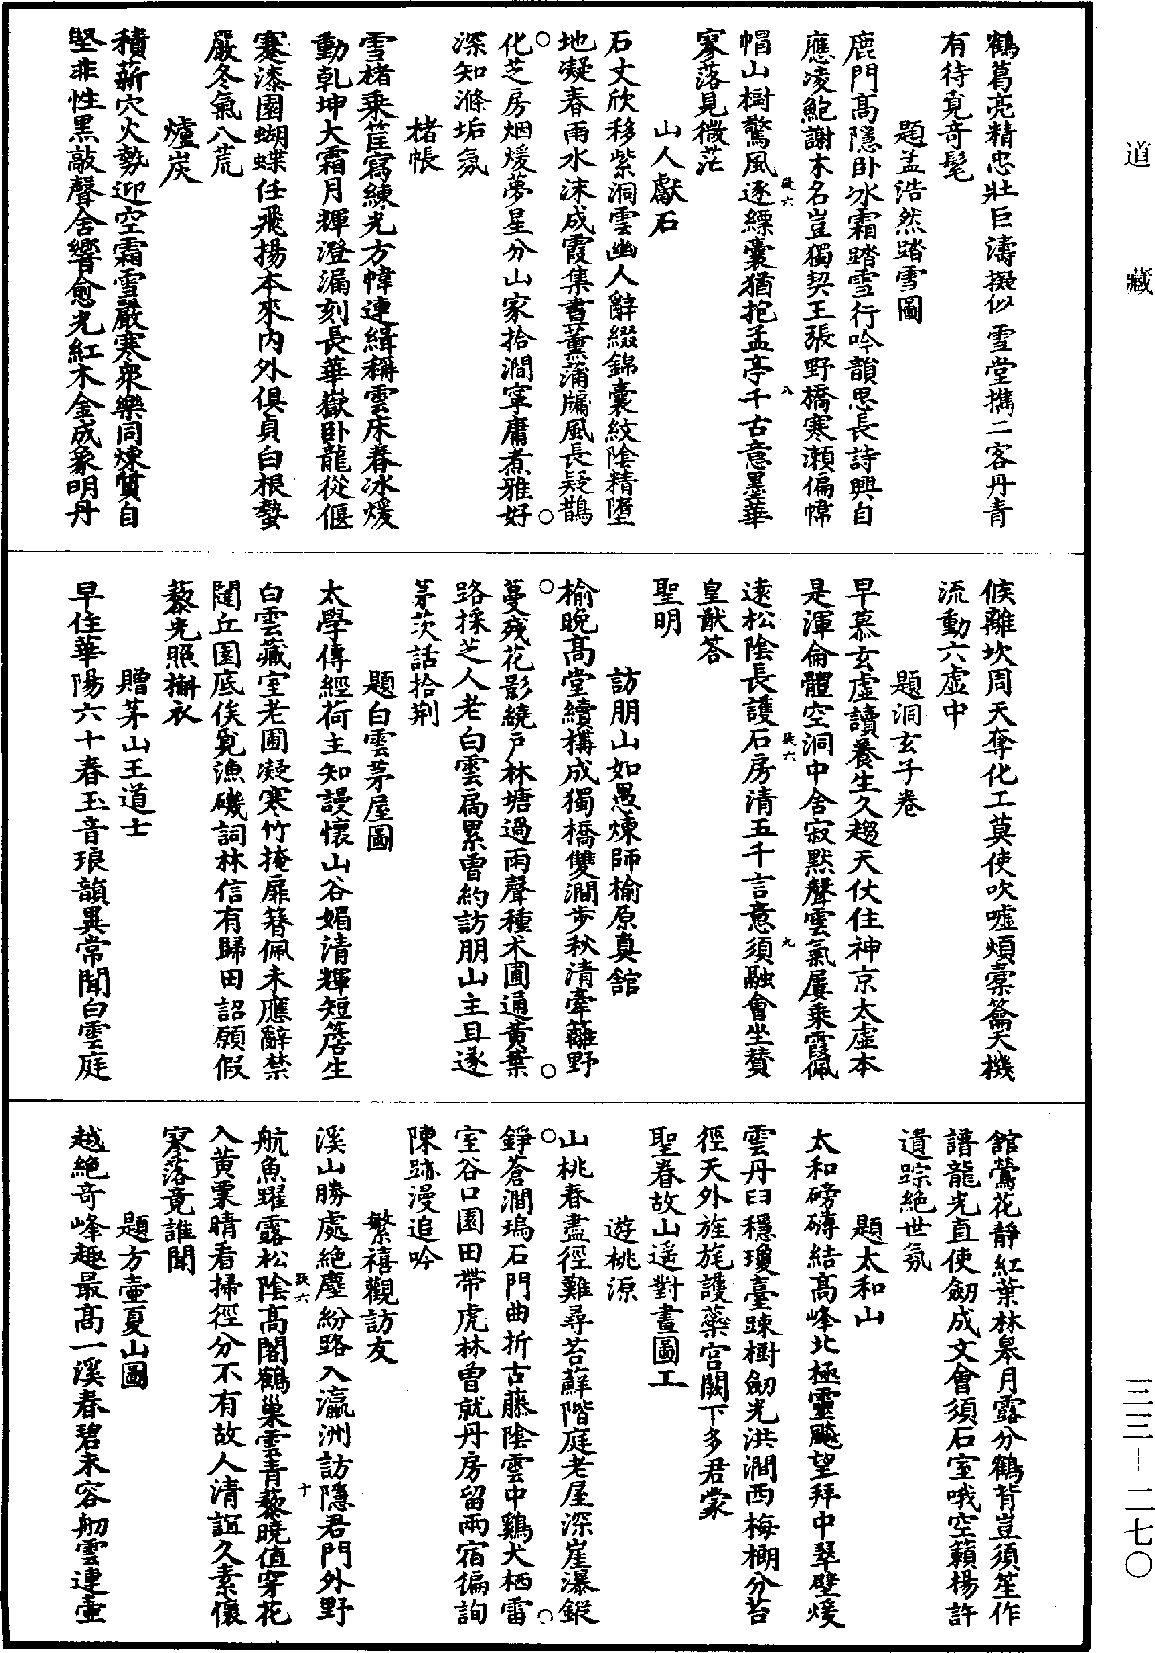 道藏
鶴葛亮精忠壯巨濤擬似雪堂擕二客丹青
有待覓奇髦
題孟浩然踏雪圖
鹿門高隱卧冰霜踏雪行吟韻思長詩興自
應凌鮑謝木名豈獨契王張野橋寒瀨偏幃
帽山樹驚風逐縹囊猶抱孟亭千古意墨華
寥落見微茫
山人獻石
石丈欣移紫洞雲幽人辭綴錦囊紋陰精墮
地凝春雨水沫成霞集晝薰蒲牖風長疑鵲
化芝房烟煖夢星分山家拾澗寧庸煮雅好
深知滌垢氛
楮帳
雪楮乘筐寫練光方幃連緝稱雲床春冰煖
動乾坤大霜月輝澄漏刻長華嶽卧龍從偃
蹇漆園蝴蝶任飛揚本來內外俱貞白根蟄
嚴冬氣八荒
爐炭
積薪穴火勢迎空霜雪嚴寒衆樂同煉質自
堅非性黑敲聲含響愈光紅木金成象明丹
候離坎周天奪化工莫使吹噓煩橐籥天機
流動六虛中
題洞玄子卷
早慕玄虛讀養生久趨天仗住神京太虛本
是渾侖體空洞中含寂默聲雲氣屢乘霞佩
遠松陰長護石房清五千言意須融會坐贊
皇猷答
聖明
訪朋山如愚煉師榆原真館
榆晚高堂續構成獨橋雙澗步秋清牽蘿野
蔓殘花影繞戶林塘過雨聲種术圃通黃葉
路採芝人老白雲扃累曾約訪朋山主且遂
茅茨話拾荆
題白雲茅屋圖
太學傳經荷主知謾懷山谷媚清輝短簷生
白雲藏室老圃凝寒竹掩扉簪佩未應辭禁
闥丘園底俟覓漁磯詞林信有歸田詔願假
藜光照擀衣
贈茅山王道士
早住華陽六十春玉音琅韻異常聞白雲庭
館鶯花靜紅葉林皋月露分鶴背豈須笙作
譜龍光直使劒成文會須石室哦空籟楊許
遺踪絕世氛
題太和山
太和磅礴結高峰北極靈颷望拜中翠壁煖
雲丹臼穩瓊臺踈樹劒光洪澗西梅棚分苔
徑天外旌旄護蘂宮闕下多君蒙
聖春故山遥對畫圖工
遊桃源
山桃春盡徑難尋苔蘚階庭老屋深崖瀑鏦
錚蒼澗塢石門曲折古藤陰雲中鷄犬栖雷
室谷口園田帶虎林曾就丹房留兩宿徧詢
陳跡漫追吟
繁禧觀訪友
溪山勝處絕塵紛路入瀛洲訪隱君門外野
航魚躍露松陰高閣鶴巢雲青藜曉值穿花
入黃粟晴看掃徑分不有故人清誼久素懷
寥落竟誰聞
題方壺夏山圖
越絕奇峰趣最高一溪春碧末容舠雲連壺
三三－二七〇